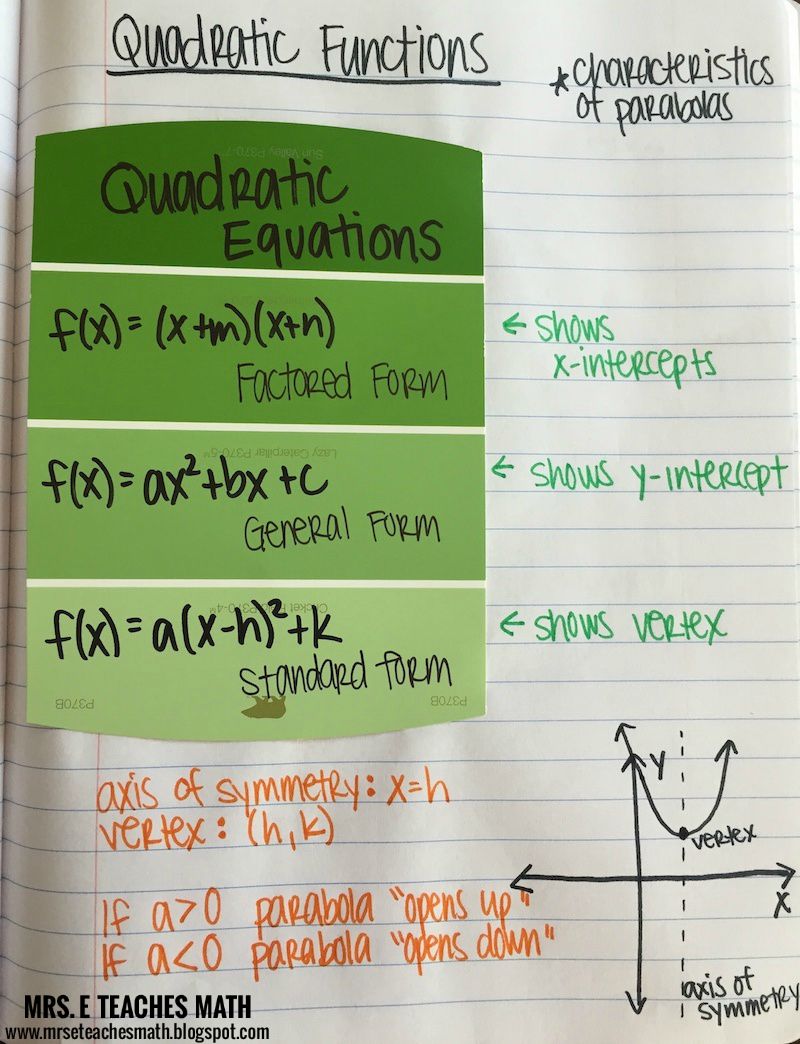 Quadratic Functions
* characteristics
of parabolas
Sun Valley P370-7
Quadratic
Equations
f(x) = (x+m)(x+n)
Factored Form
← shows
x-intercepts
Lazy Caterpillar P370-5
f(x) = ax²+bx+c
General Form
← shows y-intercept
f(x) = a(x-h)²+k
Standard form
← shows vertex
P370B
P370B
axis of symmetry: x=h
vertex: (h,k)
If a>0 parabola "opens up"
If a<0 parabola "opens down"
y
vertex
x
axis of
symmetry
MRS. E TEACHES MATH
www.mrseteachesmath.blogspot.com